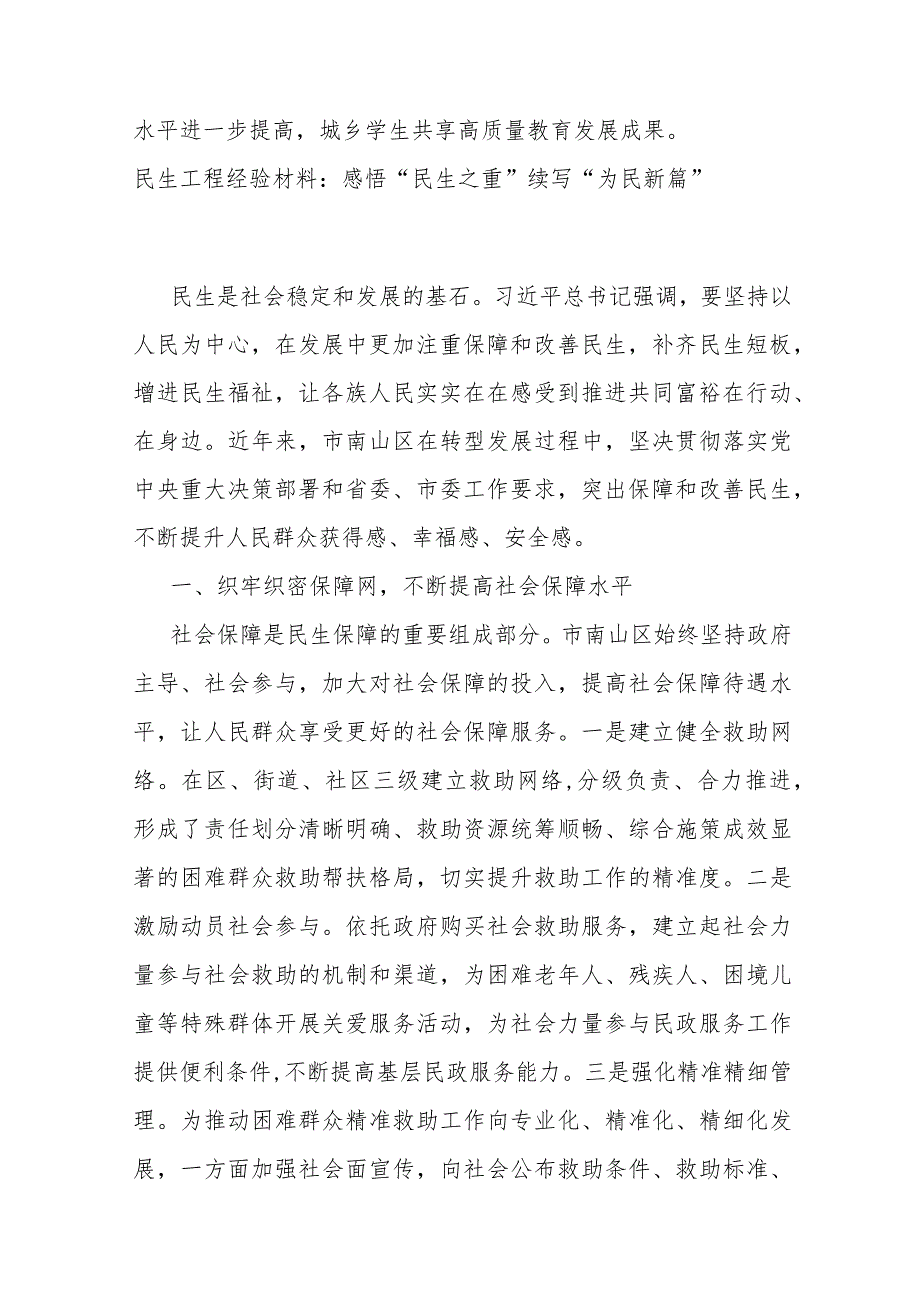 水平进一步提高，城乡学生共享高质量教育发展成果。
民生工程经验材料：感悟“民生之重”续写“为民新篇”
民生是社会稳定和发展的基石。习近平总书记强调，要坚持以
人民为中心，在发展中更加注重保障和改善民生，补齐民生短板，
增进民生福祉，让各族人民实实在在感受到推进共同富裕在行动、
在身边。近年来，市南山区在转型发展过程中，坚决贯彻落实党
中央重大决策部署和省委、市委工作要求，突出保障和改善民生，
不断提升人民群众获得感、幸福感、安全感。
一、织牢织密保障网，不断提高社会保障水平
社会保障是民生保障的重要组成部分。市南山区始终坚持政府
主导、社会参与，加大对社会保障的投入，提高社会保障待遇水
平，让人民群众享受更好的社会保障服务。一是建立健全救助网
络。在区、街道、社区三级建立救助网络,分级负责、合力推进，
形成了责任划分清晰明确、救助资源统筹顺畅、综合施策成效显
著的困难群众救助帮扶格局，切实提升救助工作的精准度。二是
激励动员社会参与。依托政府购买社会救助服务，建立起社会力
量参与社会救助的机制和渠道，为困难老年人、残疾人、困境儿
童等特殊群体开展关爱服务活动，为社会力量参与民政服务工作
提供便利条件,不断提高基层民政服务能力。三是强化精准精细管
理。为推动困难群众精准救助工作向专业化、精准化、精细化发
展，一方面加强社会面宣传，向社会公布救助条件、救助标准、